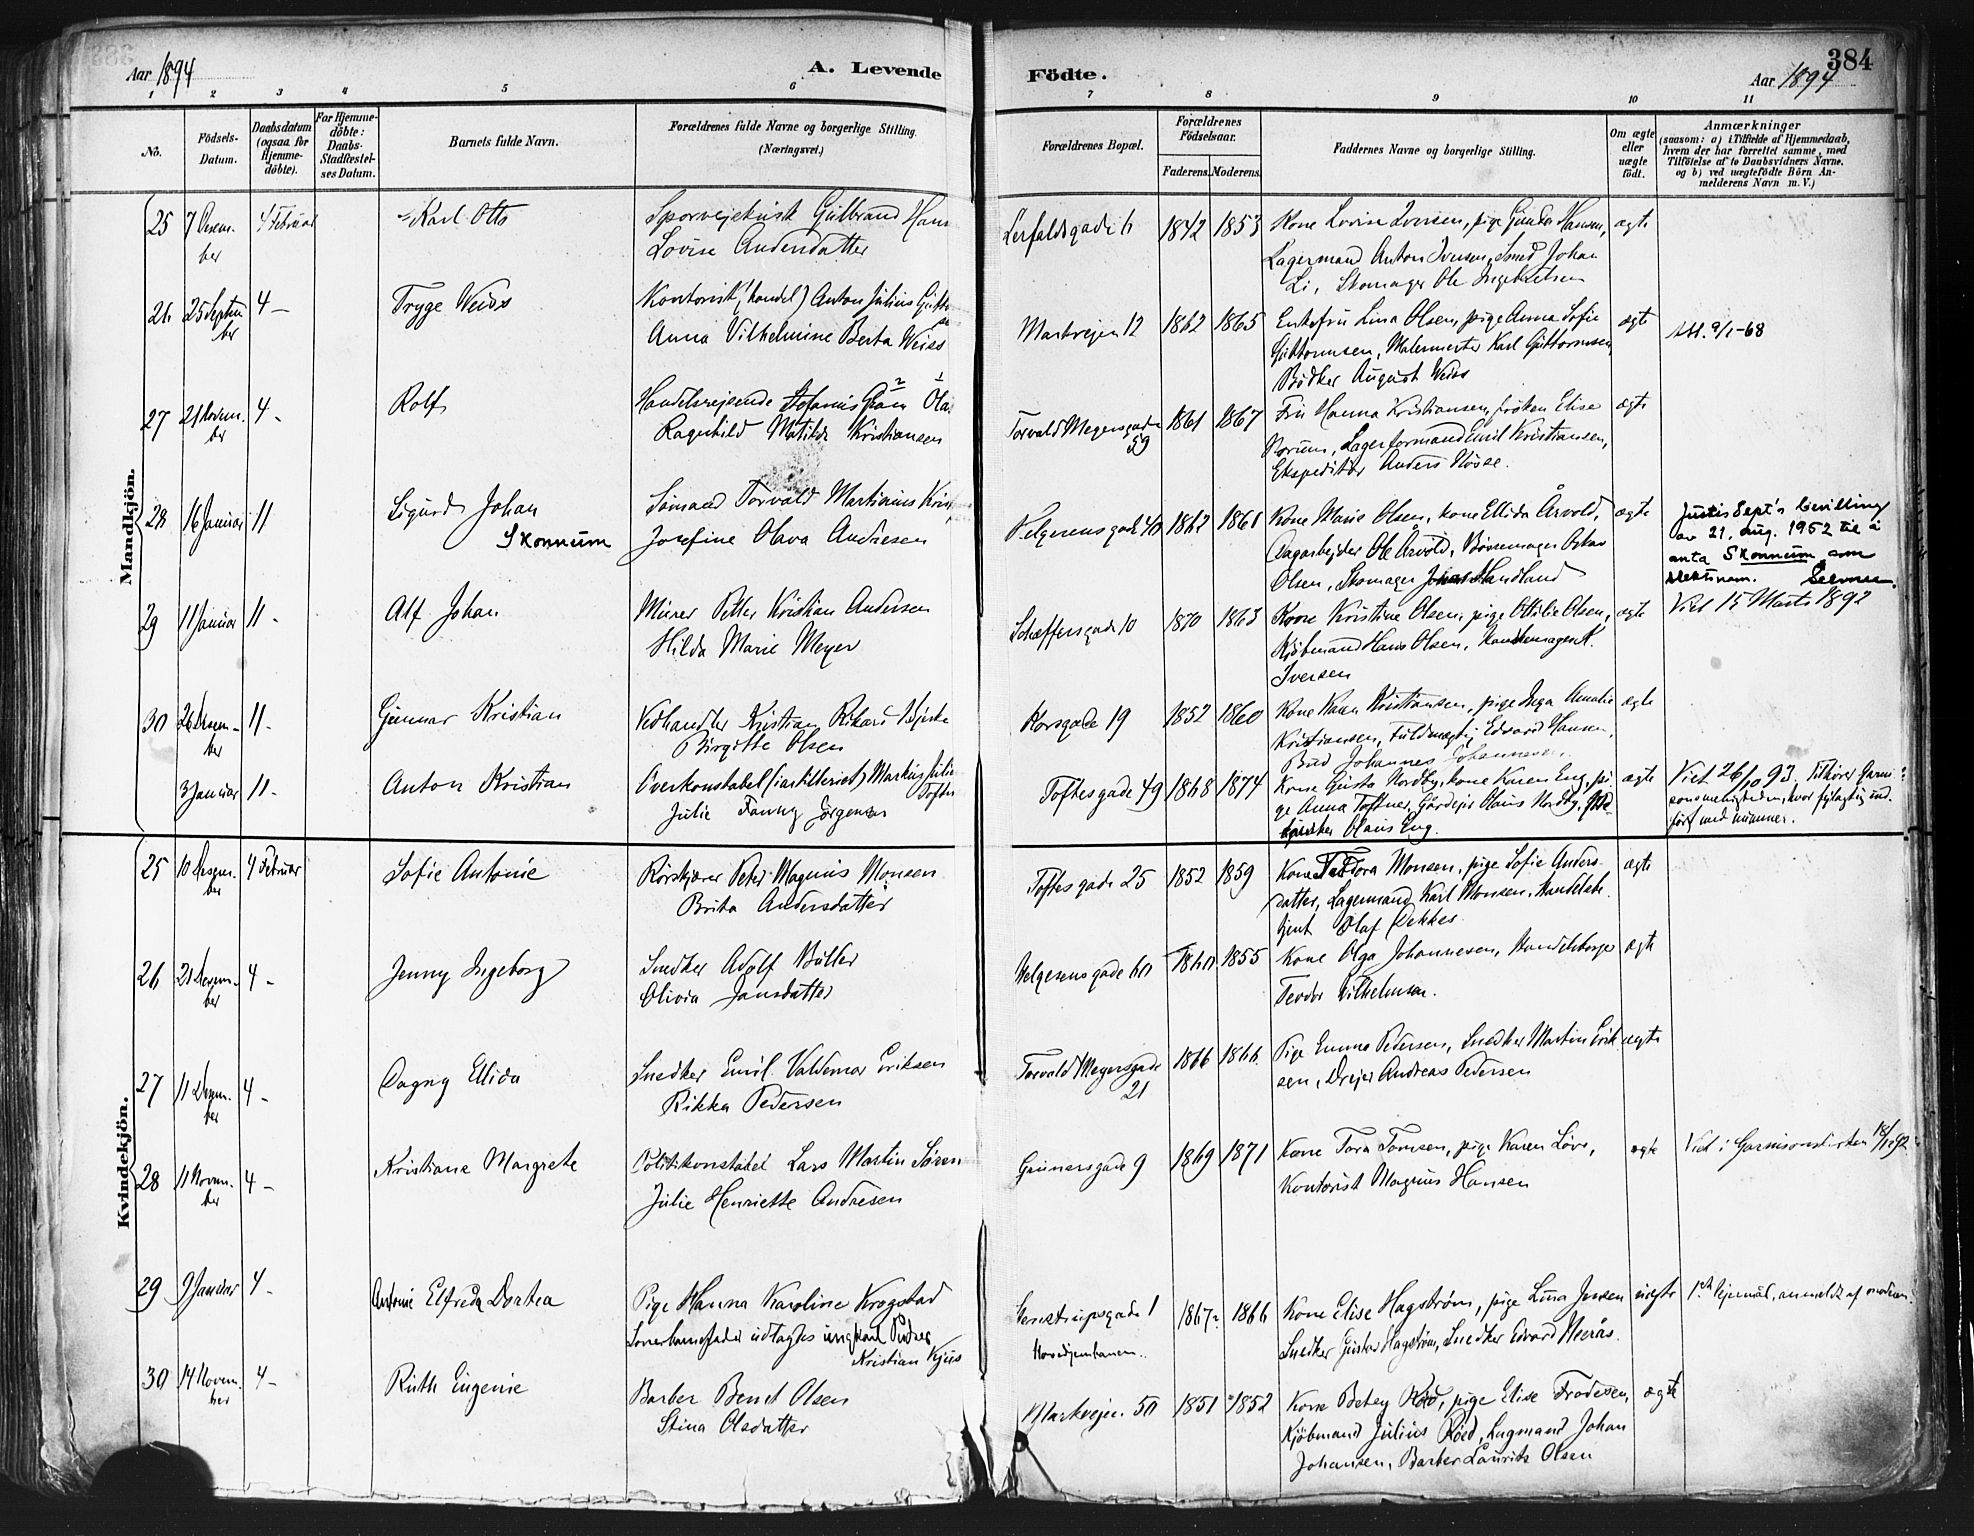 384
Aar 1894
A. Levende
Födte.
Aar 1894
1 2 3 4 5 6 7 8 9 10 11
No.
Födsels-
Datum.
Daabsdatum
(ogsaa for
Hjemme-
döbte).
For Hjemme-
döbte:
Daabs-
Stadfæstel-
ses Datum.
Barnets fulde Navn.
Forældrenes fulde Navne og borgerlige Stilling.
(Næringsvei.)
Forældrenes Bopæl.
Forældrenes
Födselsaar.
Faderens. Moderens.
Faddernes Navne og borgerlige Stilling.
Om ægte
eller
uægte
födt.
Anmærkninger
(saasom: a) i Tilfælde af Hjemmedaab,
hvem der har forrettet samme, med
Tilföielse af to Daabsvidners Navne.
og b) ved uægtefödte Börn An-
melderens Navn m. V.)
Mandkjön.
25 7 Desem-
ber
4 Februar
Karl Otto
Sporvejskusk Gulbrand Hans
Lovise Andersdatter
1842 1853
Kone Lovise Iversen, pige Gunda Hansen,
Lagermand Anton Iversen, Smed Johan
Li, Skomager Ole
ægte
26 25 Septem
ber
4 —
Trygve Weiss
Kontorist (handel) Anton Julius
Anna Vilhelmine Berta Weiss
Markvejen 12 1862 1865
Enkefru Lina Olsen, pige Anna Sofie
Guttormsen, Malermester Karl Guttormsen,
Bødker August Weiss
ægte
Att. 9/1-68
27 21 Novem-
ber
4 -
Rolf
Handelsrejsende
Ragnhild Matilde Kristiansen
Torvald Meyersgade
59
1861 1867
Fru Hanna Kristiansen, frøken Elise
Norum, Lagerformand Emil Kristiansen,
Ekspeditør Anders
ægte
28 16 Januar 11
Sigurd Johan
Skonnum
Sømand Torvald Martinius
Josefine Olava Andresen
1862 1861
Kone Marie Olsen, kone Ellida Årvold,
Dagarbejder Ole Årvold, Børsemager Oskar
Olsen, Skomager
ægte
Justis Dept's bevilling
av 21. aug. 1952 til å
anta Skonnum som
slektsnavn.
29 11 Januar 11 -
Alf Johan
Murer Petter Kristian Andersen
Hilda Marie Meyer
Schæffersgade 10 1870 1863
Kone Kristine Olsen, pige Ottilie Olsen,
Kjøbmand Hans Olsen,
Iversen
ægte
Viet 15 Marts 1892
30 26 Desem-
ber
11 -
Gunnar Kristian
Vedhandler Kristian Rikard
Birgitte Olsen
Korsgade 19 1852 1860
Kone Karen Kristiansen, pige Inga Amalie
Kristiansen, Fuldmægtig Edvard Hansen,
Bud Johannes Johannesen
ægte
3 Januar 11 -
Anton Kristian
Overkonstabel (i artilleriet) Markus Julius
Julie Fanny Jørgensen
Toftesgade 49 1868 1874
Kone Gusta Nordby, kone Karen Eng, pi-
ge Anna Toftner, Gårdejer Olaus Nordby,
Olaus Eng.
ægte
Viet 26/10 93. Tilhører Garni-
sonsmenigheden, hvor fyldestgj. ind-
ført med nummer.
Kvindekjön.
25 10 Desem-
ber
4 Februar
Sofie Antonie
Rørskjærer Peter Magnus Monsen
Brita Andersdatter
Toftesgade 25 1852 1859
Kone Teodora Monsen, pige Sofie Anders-
datter, Lagermand Karl Monsen, Handelsbe-
tjent Olaf
ægte
26 21 Desem-
ber
4 -
Jenny Ingeborg
Snedker Adolf Büller
Olivia Jansdatter
Helgesensgade 60 1860 1855
Kone Olga Johannesen, Handelsborger
Teodor Vilhelmsen.
ægte
27 11 Desem-
ber
4 -
Dagny Ellida
Snedker Emil Valdemar Eriksen
Rikka Pedersen
Torvald Meyersgade
21
1866 1866
Pige Emma Pedersen, Snedker Martin Erik-
sen, Drejer Andreas Pedersen
ægte
28 11 Novem-
ber
4 -
Kristiane Margrete
Politikonstabel Lars Martin Søren
Julie Henriette Andresen
Grünersgade 9 1869 1871
Kone Tora Tomsen, pige Karen Løve,
Kontorist Magnus Hansen
ægte
Viet i Garnisonskirken
29 9 Januar 4 -
Antonie Elfreda Dortea
Pige Hanna Karoline Krogstad
Som barnefader udlægges ungkarl Peder
Kristian Kjus
Stenstrupsgade 1
Hovedjernbanen.
1867 1866
Kone Elise Hagstrøm, pige Lina Jensen
Snedker Gustav Hagstrøm, Snedker Edvard
uægte
1ste lejermål, anmeldt af moderen.
30 14 Novem-
ber
4 -
Ruth Eugenie
Barber Bernt Olsen
Stina Olsdatter
Markvejen 50 1851 1852
Kone Betsy Röed, pige Elise Frodesen,
Kjøbmand Julius Röed, Lagmand Johan
Johansen, Barber Laurits Olsen
ægte